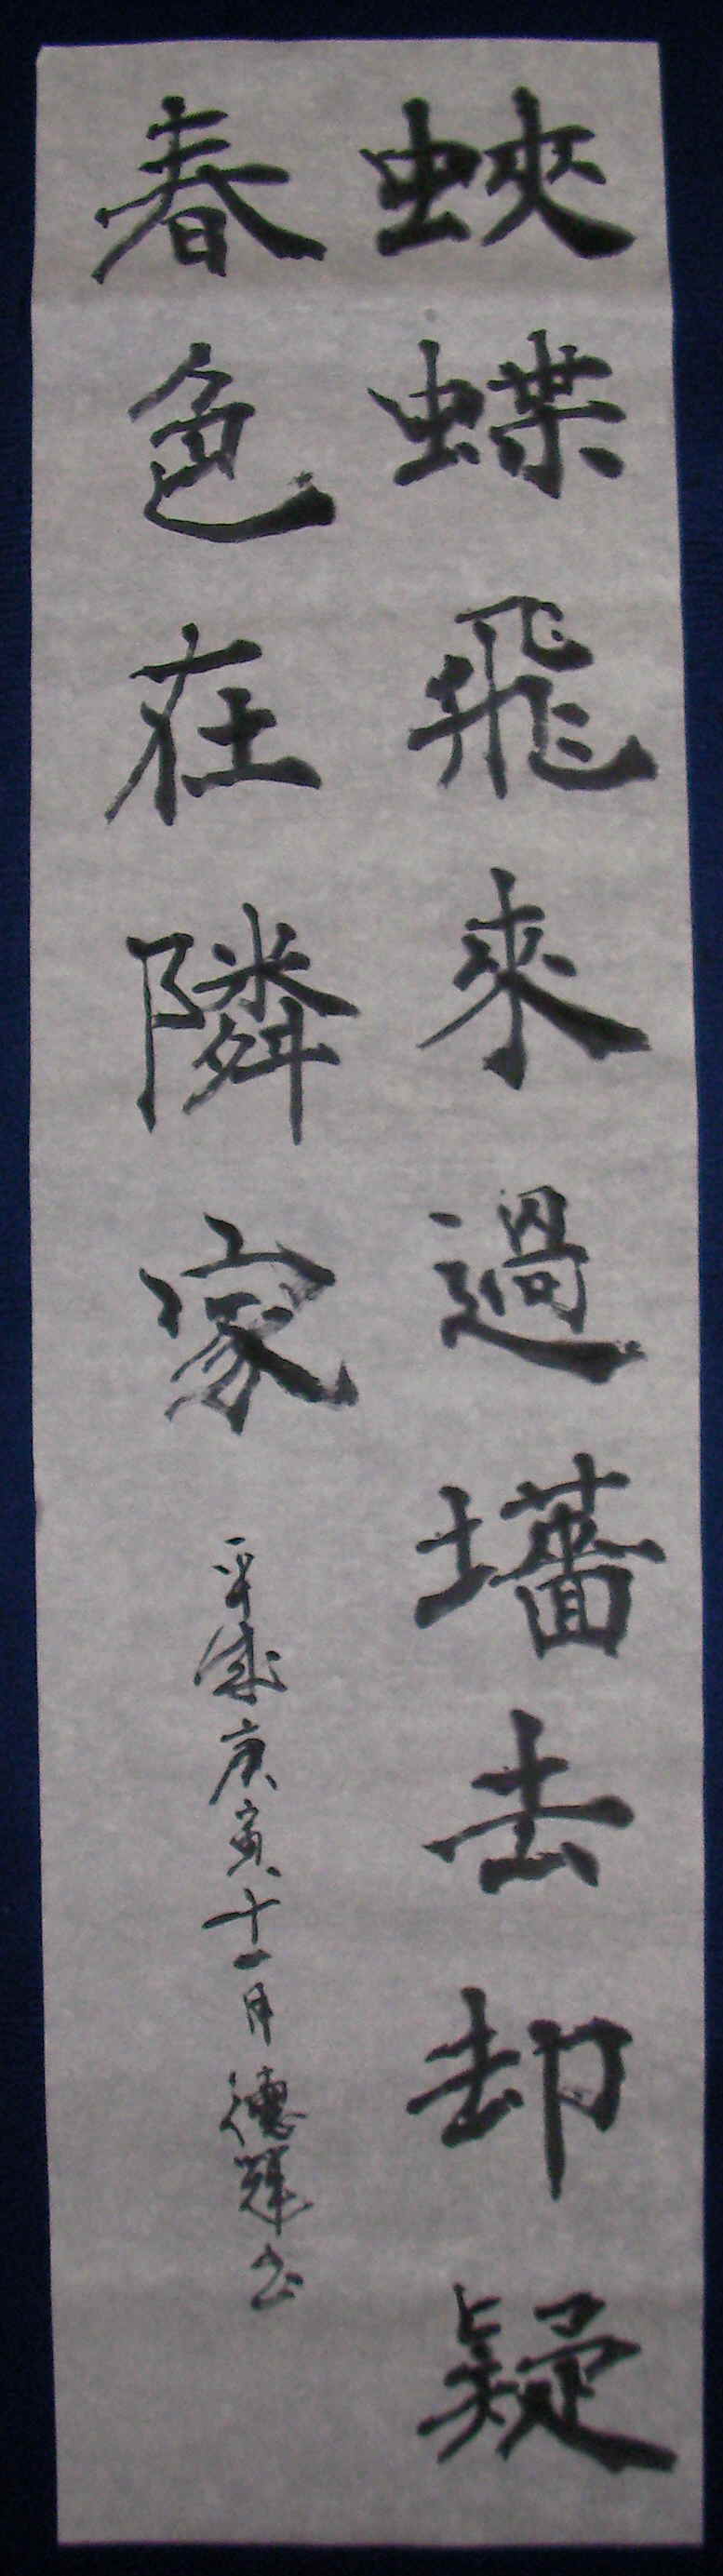 蛺蝶飛來過墻去却疑
春色在隣家
平成庚寅十一月德輝书